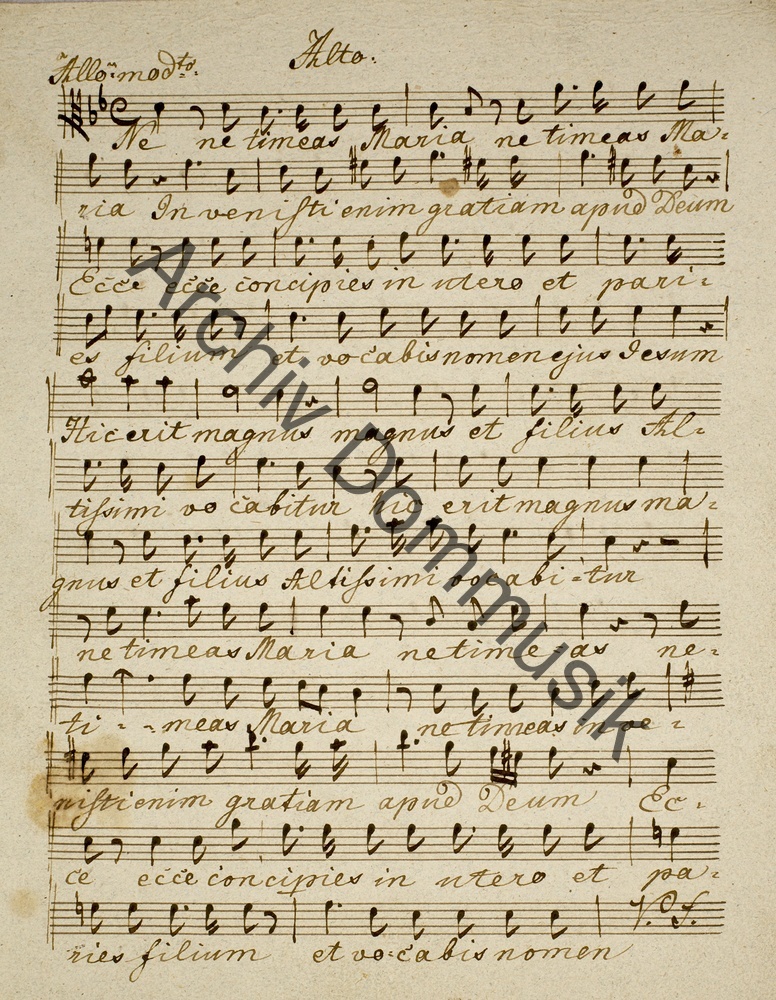 Alto.
Allo: modto.
Ne ne timeas Maria ne timeas Ma-
ria In venisti enim gratiam apud Deum
Ecce ecce concipies in utero et pari-
es filium et vocabis nomen ejus Jesum
Hic erit magnus magnus et filius Al-
tissimi vocabitur hic erit magnus ma-
gnus et filius Altissimi vocabi-tur
ne timeas Maria ne time-as ne-
ti--meas Maria ne timeas inve-
nisti enim gratiam apud Deum Ec-
ce ecce concipies in utero et pa-
ries filium et vo-cabis nomen
V. S.
Archiv Dommusik